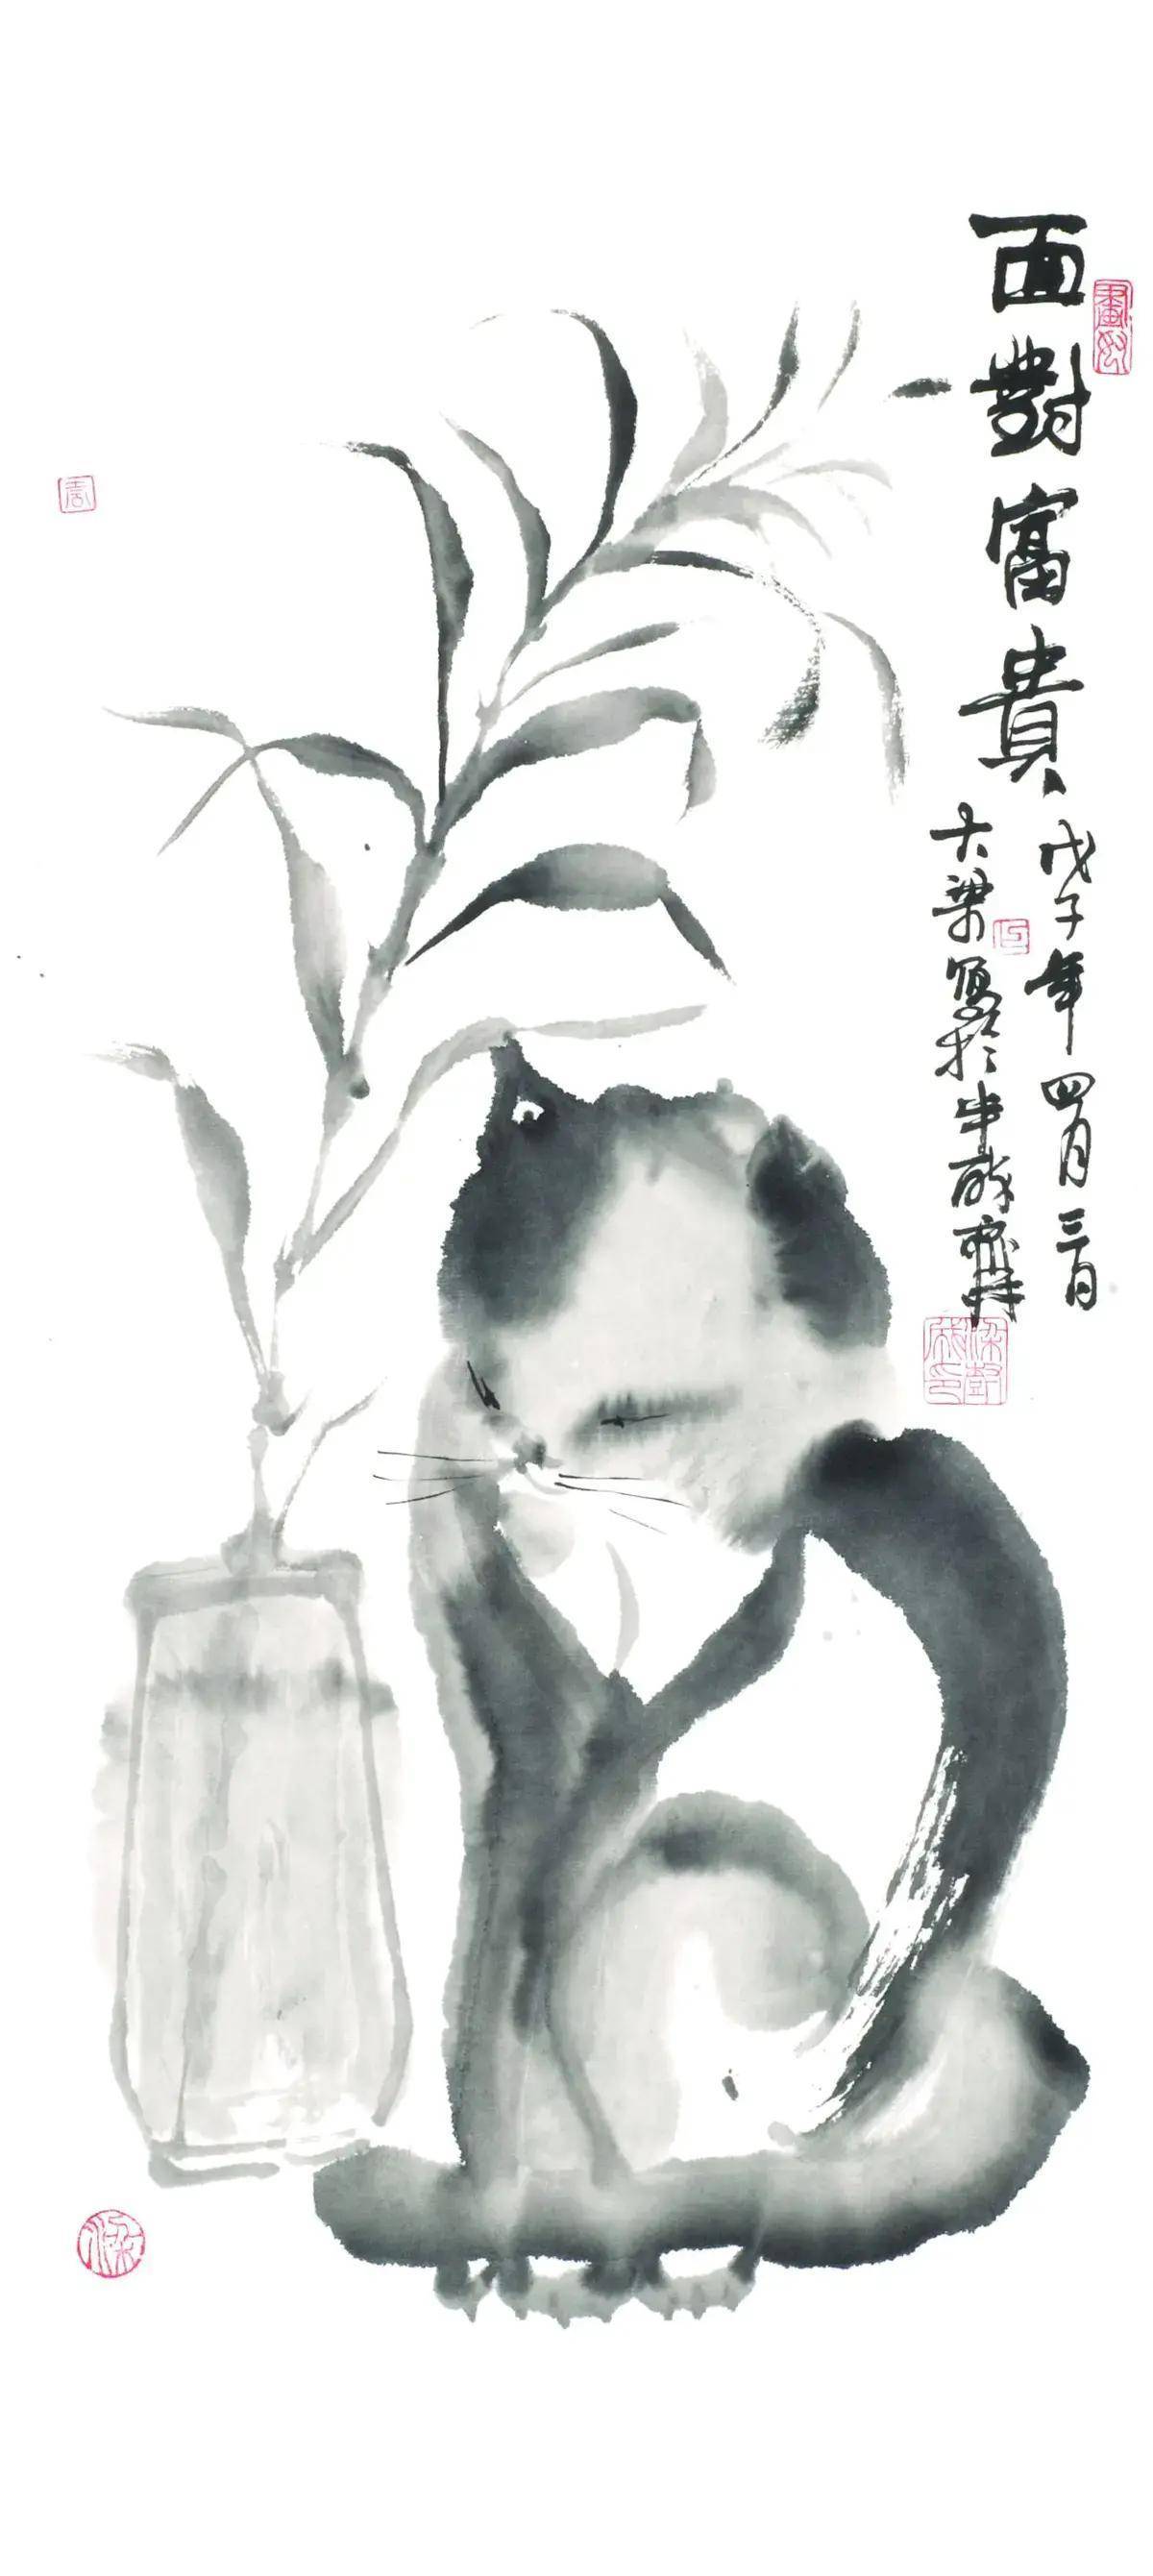 面對富貴
戊子年四月三日
大梁寫於半醉齋
梁